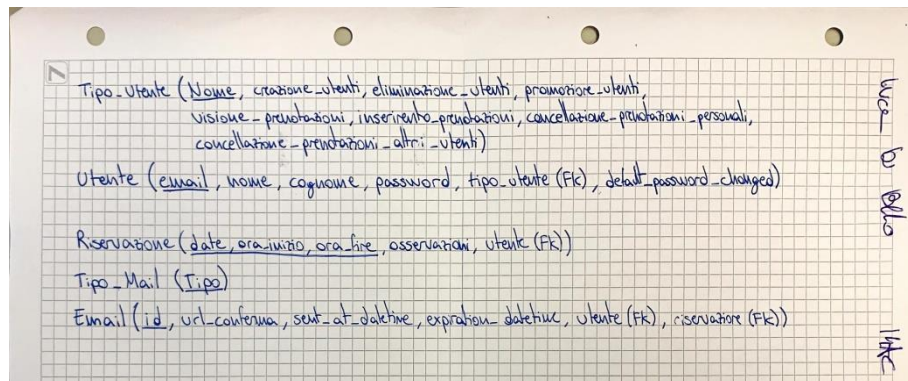 Tipo_Utente (Nome, creazione_utenti, eliminazione_utenti, promozione_utenti,
visione_prenotazioni, inserimento_prenotazioni, cancellazione_prenotazioni_personali,
cancellazione_prenotazioni_altri_utenti)
Utente (email, nome, cognome, password, tipo_utente (FK), default_password_changed)
Riservazione (date, ora_inizio, ora_fine, osservazioni, utente (FK))
Tipo_Mail (Tipo)
Email (id, url_conferma, sent_at_datetime, expration_datetime, utente (FK), riservazione (FK))
Luca